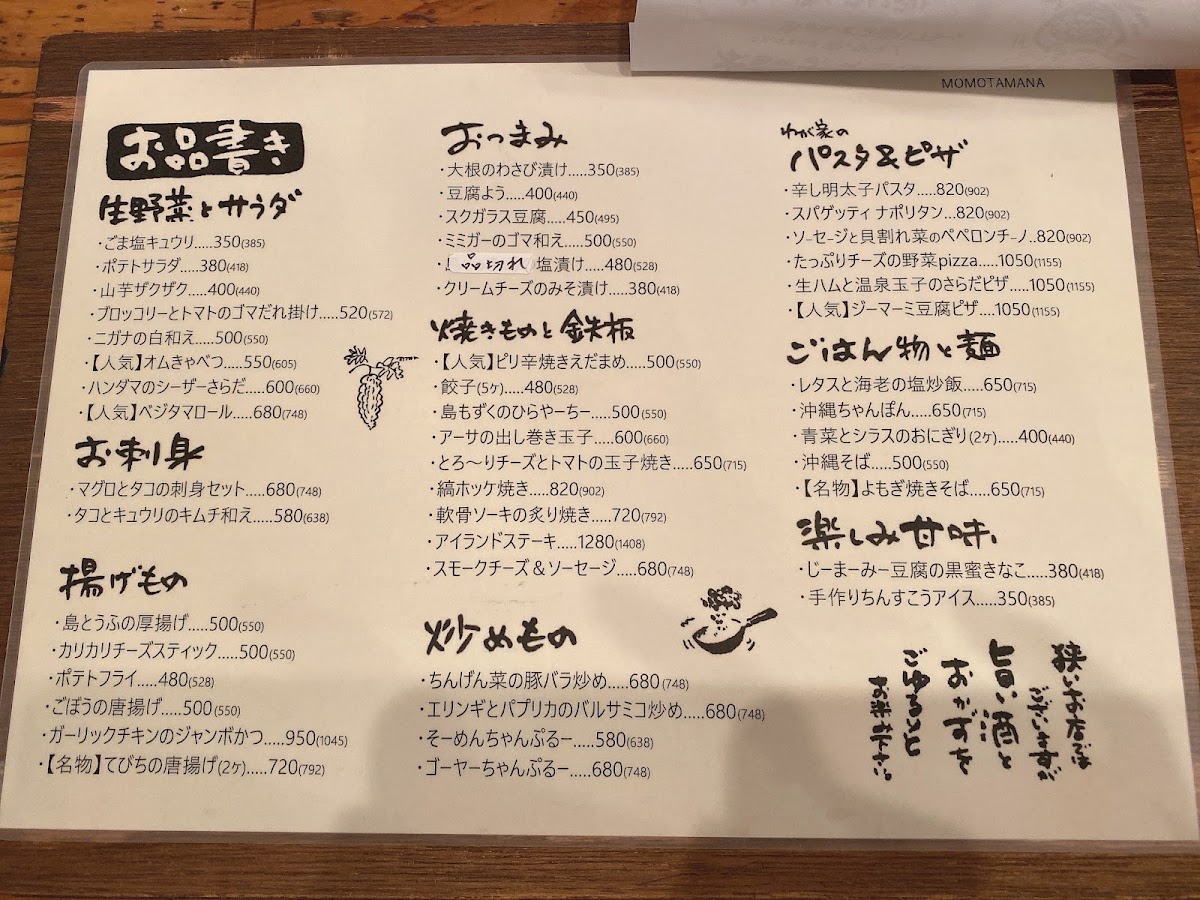 MOMOTAMANA
お品書き
生野菜とサラダ
・ごま塩キュウリ.....350(385)
・ポテトサラダ.....380(418)
・山芋ザクザク.....400(440)
・ブロッコリーとトマトのゴマだれ掛け.....520(572)
・ニガナの白和え.....500(550)
・【人気】オムきゃべつ.....550(605)
・ハンダマのシーザーさらだ.....600(660)
・【人気】ベジタマロール.....680(748)
お刺身
・マグロとタコの刺身セット.....680(748)
・タコとキュウリのキムチ和え.....580(638)
揚げもの
・島とうふの厚揚げ.....500(550)
・カリカリチーズスティック.....500(550)
・ポテトフライ.....480(528)
・ごぼうの唐揚げ.....500(550)
・ガーリックチキンのジャンボかつ.....950(1045)
・【名物】てびちの唐揚げ(2ケ).....720(792)
おつまみ
・大根のわさび漬け.....350(385)
・豆腐よう.....400(440)
・スクガラス豆腐.....450(495)
・ミミガーのゴマ和え.....500(550)
・品切れ 塩漬け.....480(528)
・クリームチーズのみそ漬け.....380(418)
焼きものと鉄板
・【人気】ピリ辛焼きえだまめ.....500(550)
・餃子(5ケ).....480(528)
・島もずくのひらやーちー.....500(550)
・アーサの出し巻き玉子.....600(660)
・とろ～りチーズとトマトの玉子焼き.....650(715)
・縞ホッケ焼き.....820(902)
・軟骨ソーキの炙り焼き.....720(792)
・アイランドステーキ.....1280(1408)
・スモークチーズ＆ソーセージ.....680(748)
炒めもの
・ちんげん菜の豚バラ炒め.....680(748)
・エリンギとパプリカのバルサミコ炒め.....680(748)
・そーめんちゃんぷるー.....580(638)
・ゴーヤーちゃんぷるー.....680(748)
わが家の
パスタ&ピザ
・辛し明太子パスタ.....820(902)
・スパゲッティ ナポリタン...820(902)
・ソーセージと貝割れ菜のペペロンチーノ..820(902)
・たっぷりチーズの野菜pizza.....1050(1155)
・生ハムと温泉玉子のさらだピザ.....1050(1155)
・【人気】ジーマーミ豆腐ピザ.....1050(1155)
ごはん物と麺
・レタスと海老の塩炒飯.....650(715)
・沖縄ちゃんぽん.....650(715)
・青菜とシラスのおにぎり(2ケ).....400(440)
・沖縄そば.....500(550)
・【名物】よもぎ焼きそば.....650(715)
楽しみ甘味
・じーまーみー豆腐の黒蜜きなこ.....380(418)
・手作りちんすこうアイス.....350(385)
狭いお店では
ございますが
旨い酒と
おかずを
ごゆるりと